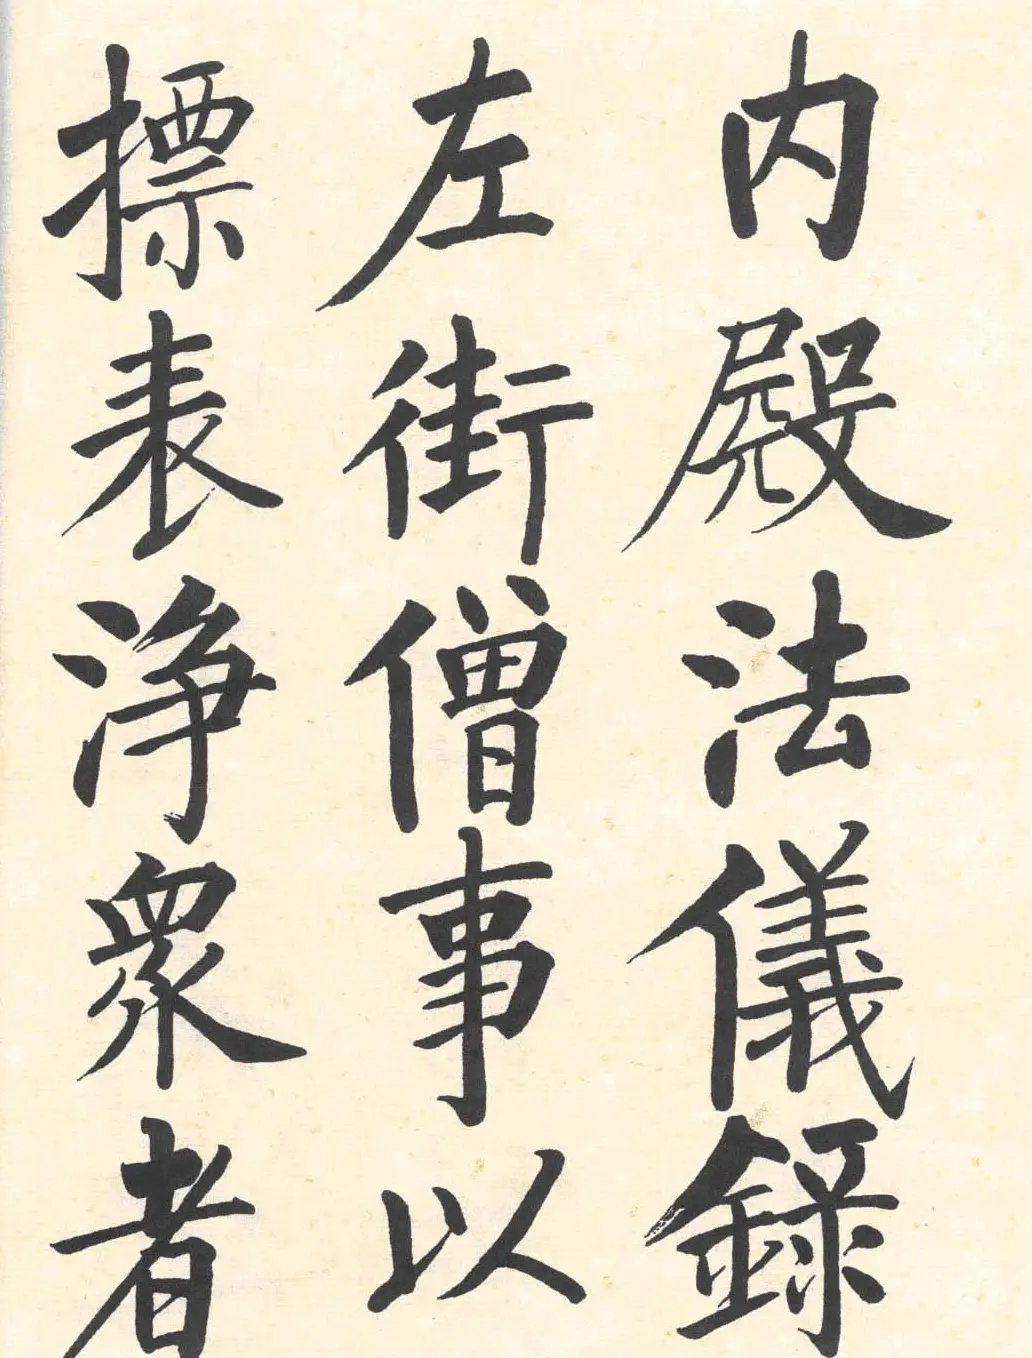 内殿法儀録
左街僧事以
摽表浄衆者